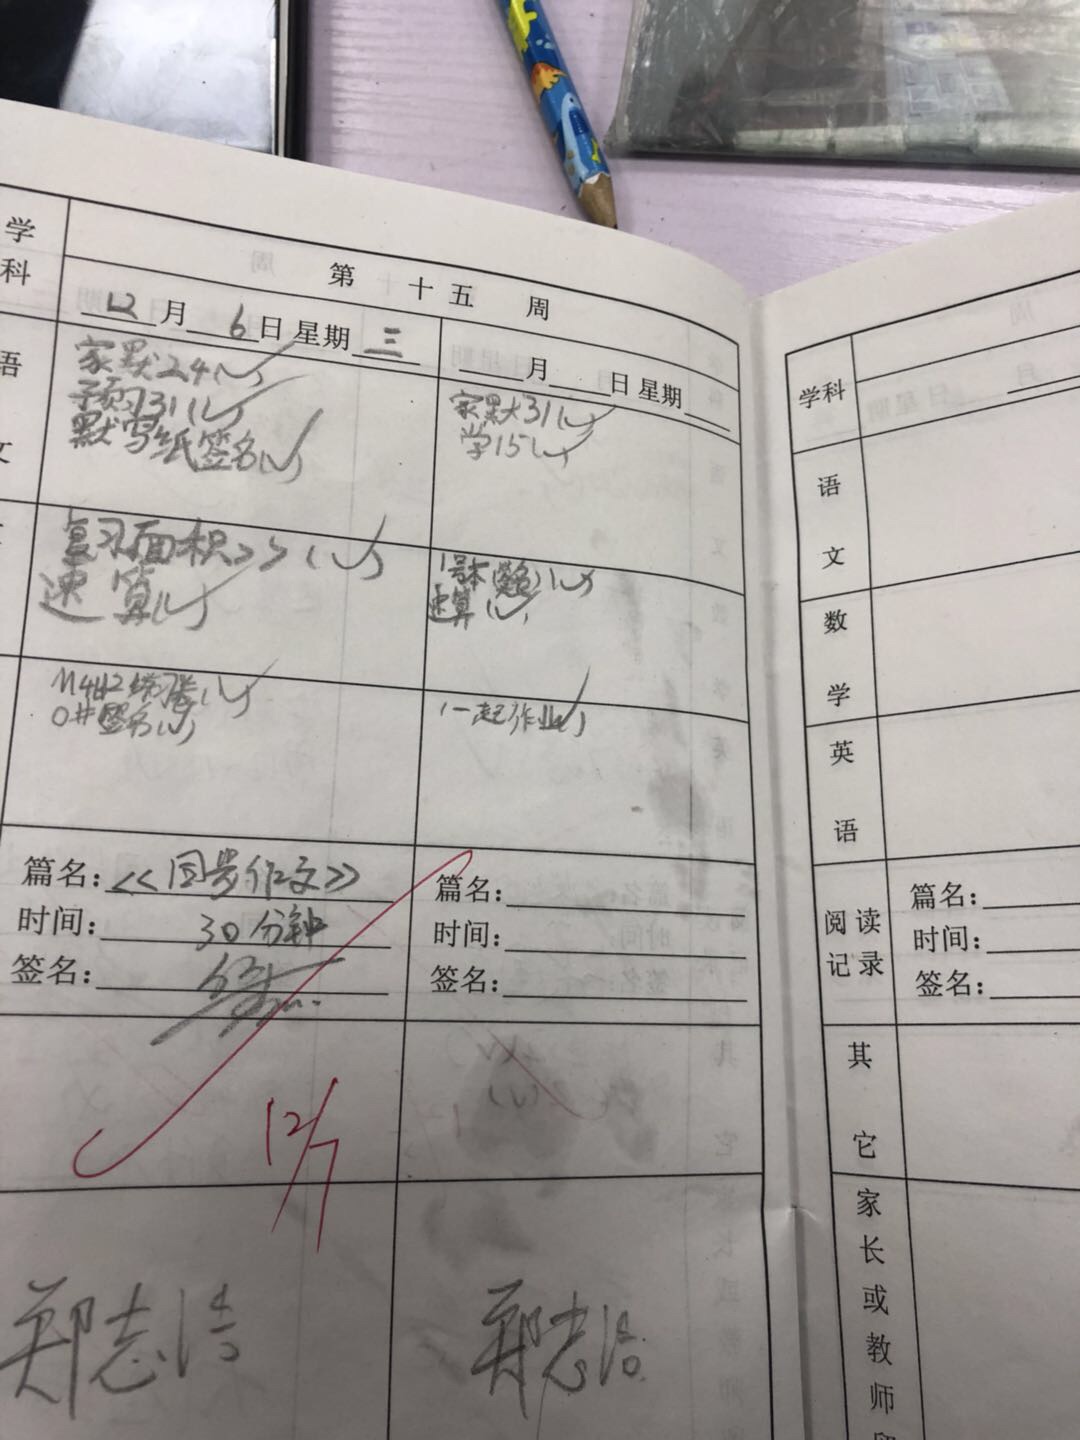 学
科
第 十 五 周
12月6日 星期三
月 日 星期
语
文
家默24(√)
预习31(√)
默写纸签名(√)
家默31(√)
学15(√)
复习面积
速算(√)
1号本
速算(√)
M4U2
签名(√)
(一起作业√)
篇名:《同步作文》
时间: 30分钟
签名:
篇名:
时间:
签名:
12/7
郑志浩
郑志浩
学科
月
语
文
数
学
英
语
阅 读
记 录
篇名:
时间:
签名:
其
它
家
长
或
教
师